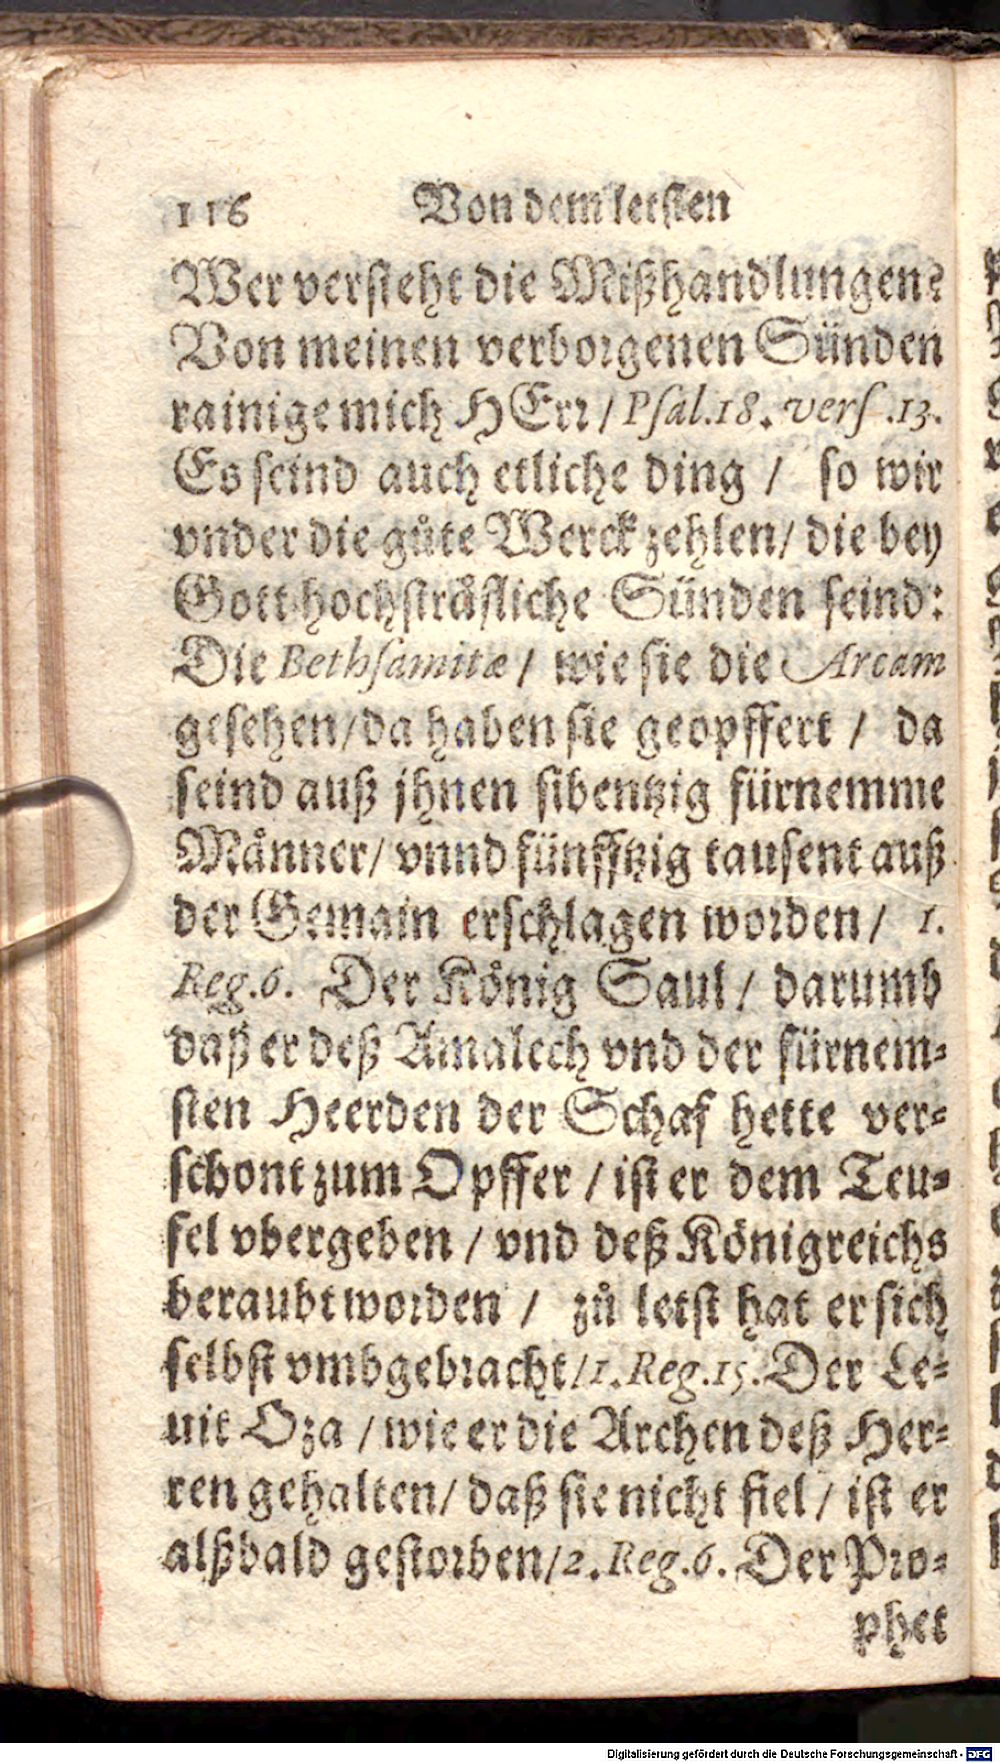 116 Von dem letsten
Wer versteht die Mißhandlungen?
Von meinen verborgenen Sünden
rainige mich HErr / Psal. 18. vers. 13.
Es seind auch etliche ding / so wir
vnder die gůte Werck zehlen / die bey
Gott hochsträffliche Sünden seind:
Die Bethsamitæ / wie sie die Arcam
gesehen / da haben sie geopffert / da
seind auß jhnen sibentzig fürnemme
Männer / vnnd fünfftzig tausent auß
der Gemain erschlagen worden / 1.
Reg. 6. Der König Saul / darumb
daß er deß Amalech vnd der fürnem-
sten Heerden der Schaf hette ver-
schont zum Opffer / ist er dem Teu-
fel vbergeben / vnd deß Königreichs
beraubt worden / zů letst hat er sich
selbst vmbgebracht / 1. Reg. 15. Der Le-
uit Oza / wie er die Archen deß Her-
ren gehalten / daß sie nicht fiel / ist er
alßbald gestorben / 2. Reg. 6. Der Pro-
phet
Digitalisierung gefördert durch die Deutsche Forschungsgemeinschaft - DFG